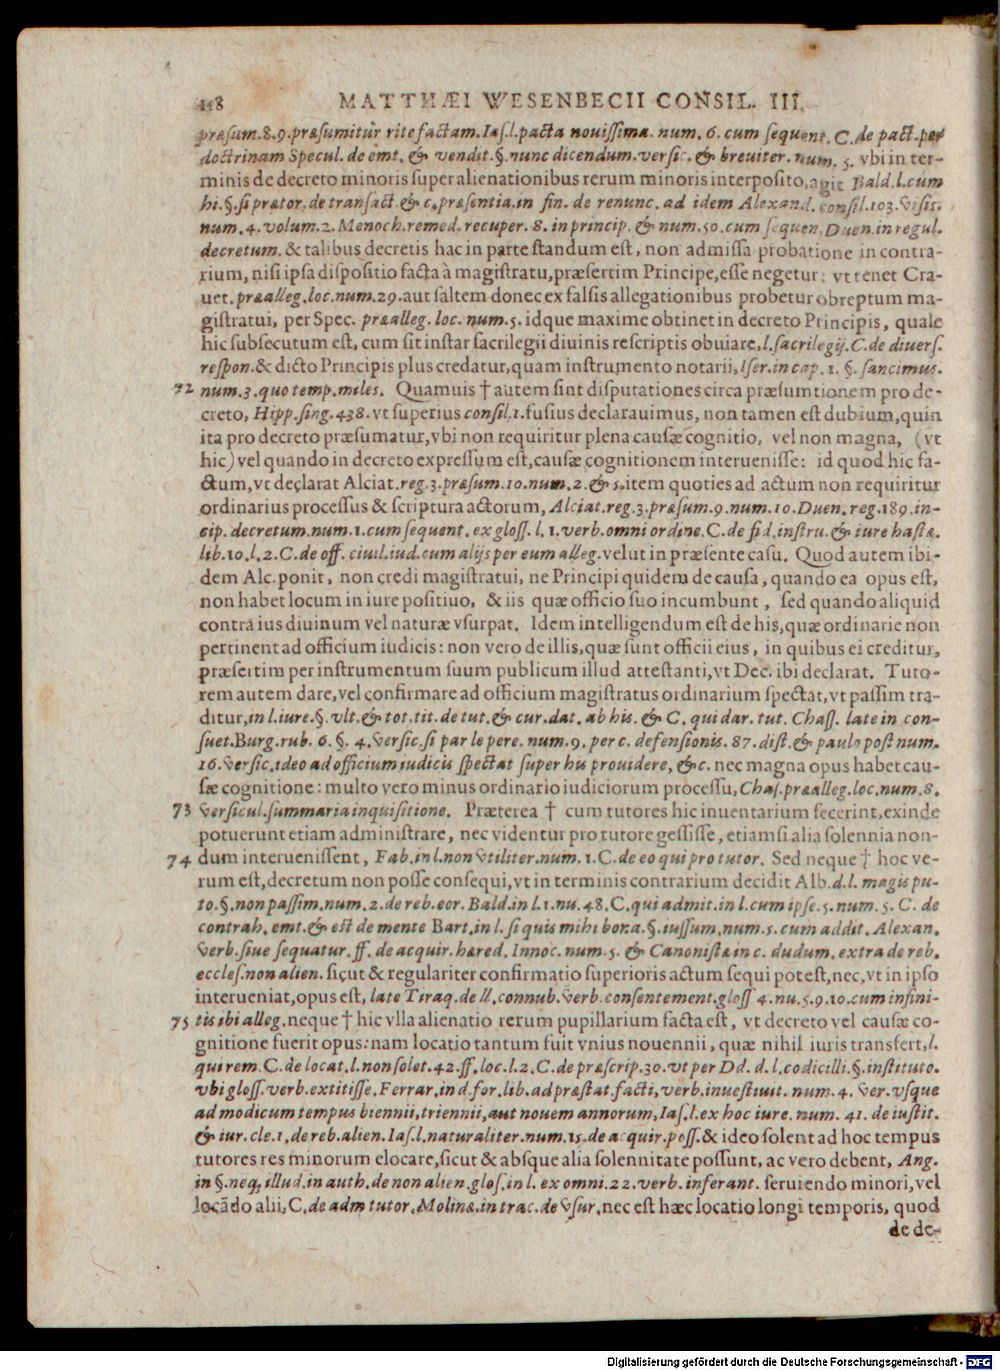 418 MATTHÆI WESENBECII CONSIL. III.
præsum. 8. 9. præsumitur rite factam. Ias. l. pacta nouissima. num. 6. cum sequent. C. de pact. per
doctrinam Specul. de emt. & vendit. §. nunc dicendum. versic. & breuiter. num. 5. vbi in ter-
minis de decreto minoris super alienationibus rerum minoris interposito, agit Bald. l. cum
hi. §. si prætor. de transact. & c. præsentia. in fin. de renunc. ad idem Alexand. consil. 103. Visis.
num. 4. volum. 2. Menoch. remed. recuper. 8. in princip. & num. 50. cum sequen. Duen. in regul.
decretum. & talibus decretis hac in parte standum est, non admissa probatione in contra-
rium, nisi ipsa dispositio facta à magistratu, præsertim Principe, esse negetur: vt tenet Cra-
uet. præalleg. loc. num. 29. aut saltem donec ex falsis allegationibus probetur obreptum ma-
gistratui, per Spec. præalleg. loc. num. 5. idque maxime obtinet in decreto Principis, quale
hic subsecutum est, cum sit instar sacrilegii diuinis rescriptis obuiare, l. sacrilegij. C. de diuers.
respon. & dicto Principis plus credatur, quam instrumento notarii, Iser. in cap. 1. §. sancimus.
72 num. 3. quo temp. miles. Quamuis † autem sint disputationes circa præsumtionem pro de-
creto, Hipp. sing. 438. vt superius consil. 1. fusius declarauimus, non tamen est dubium, quin
ita pro decreto præsumatur, vbi non requiritur plena causæ cognitio, vel non magna, (vt
hic) vel quando in decreto expressum est, causæ cognitionem interuenisse: id quod hic fa-
ctum, vt declarat Alciat. reg. 3. præsum. 10. num. 2. & 5. item quoties ad actum non requiritur
ordinarius processus & scriptura actorum, Alciat. reg. 3. præsum. 9. num. 10. Duen. reg. 189. in-
cip. decretum. num. 1. cum sequent. ex gloss. l. 1. verb. omni ordine. C. de fid. instru. & iure hastæ.
lib. 10. l. 2. C. de off. ciuil. iud. cum alijs per eum alleg. velut in præsente casu. Quod autem ibi-
dem Alc. ponit, non credi magistratui, ne Principi quidem de causa, quando ea opus est,
non habet locum in iure positiuo, & iis quæ officio suo incumbunt, sed quando aliquid
contra ius diuinum vel naturæ vsurpat. Idem intelligendum est de his, quæ ordinarie non
pertinent ad officium iudicis: non vero de illis, quæ sunt officii eius, in quibus ei creditur,
præsertim per instrumentum suum publicum illud attestanti, vt Dec. ibi declarat. Tuto-
rem autem dare, vel confirmare ad officium magistratus ordinarium spectat, vt passim tra-
ditur, in l. iure. §. vlt. & tot. tit. de tut. & cur. dat. ab his. & C. qui dar. tut. Chass. late in con-
suet. Burg. rub. 6. §. 4. Versic. si par le pere. num. 9. per c. defensionis. 87. dist. & paulo post num.
16. Versic. ideo ad officium iudicis spectat super his prouidere, &c. nec magna opus habet cau-
sæ cognitione: multo vero minus ordinario iudiciorum processu, Chas. præalleg. loc. num. 8.
73 Versicul. summaria inquisitione. Præterea † cum tutores hic inuentarium fecerint, exinde
potuerunt etiam administrare, nec videntur pro tutore gessisse, etiamsi alia solennia non-
74 dum interuenissent, Fab. in l. non Vtiliter. num. 1. C. de eo qui pro tutor. Sed neque † hoc ve-
rum est, decretum non posse consequi, vt in terminis contrarium decidit Alb. d. l. magis pu-
to. §. non passim. num. 2. de reb. eor. Bald. in l. 1. nu. 48. C. qui admit. in l. cum ipse. 5. num. 5. C. de
contrah. emt. & est de mente Bart. in l. si quis mihi bona. §. iussum. num. 5. cum addit. Alexan.
Verb. siue sequatur. ff. de acquir. hæred. Innoc. num. 5. & Canonistæ in c. dudum. extra de reb.
eccles. non alien. sicut & regulariter confirmatio superioris actum sequi potest, nec, vt in ipso
interueniat, opus est, late Tiraq. de ll. connub. Verb. consentement. gloss 4. nu. 5. 9. 10. cum infini-
75 tis ibi alleg. neque † hic vlla alienatio rerum pupillarium facta est, vt decreto vel causæ co-
gnitione fuerit opus: nam locatio tantum fuit vnius nouennii, quæ nihil iuris transfert, l.
qui rem. C. de locat. l. non solet. 42. ff. loc. l. 2. C. de præscrip. 30. vt per Dd. d. l. codicilli. §. instituto.
vbi gloss. verb. extitisse. Ferrar. in d. for. lib. ad præstat. facti, verb. inuestiuit. num. 4. Ver. vsque
ad modicum tempus biennii, triennii, aut nouem annorum, Ias. l. ex hoc iure. num. 41. de iustit.
& iur. cle. 1. de reb. alien. Ias. l. naturaliter. num. 15. de acquir. poss. & ideo solent ad hoc tempus
tutores res minorum elocare, sicut & absque alia solennitate possunt, ac vero debent, Ang.
in §. neq; illud. in auth. de non alien. glos. in l. ex omni. 22. verb. inferant. seruiendo minori, vel
locãdo alii, C. de adm tutor. Molinæ. in trac. de Vsur, nec est hæc locatio longi temporis, quod
de de-
Digitalisierung gefördert durch die Deutsche Forschungsgemeinschaft - DFG